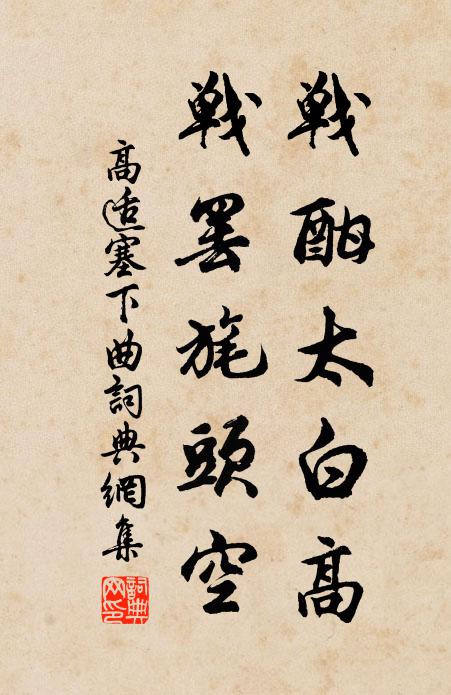 戦酣太白高
戦罷旄頭空
高适塞下曲詞典網集
詞典
网印